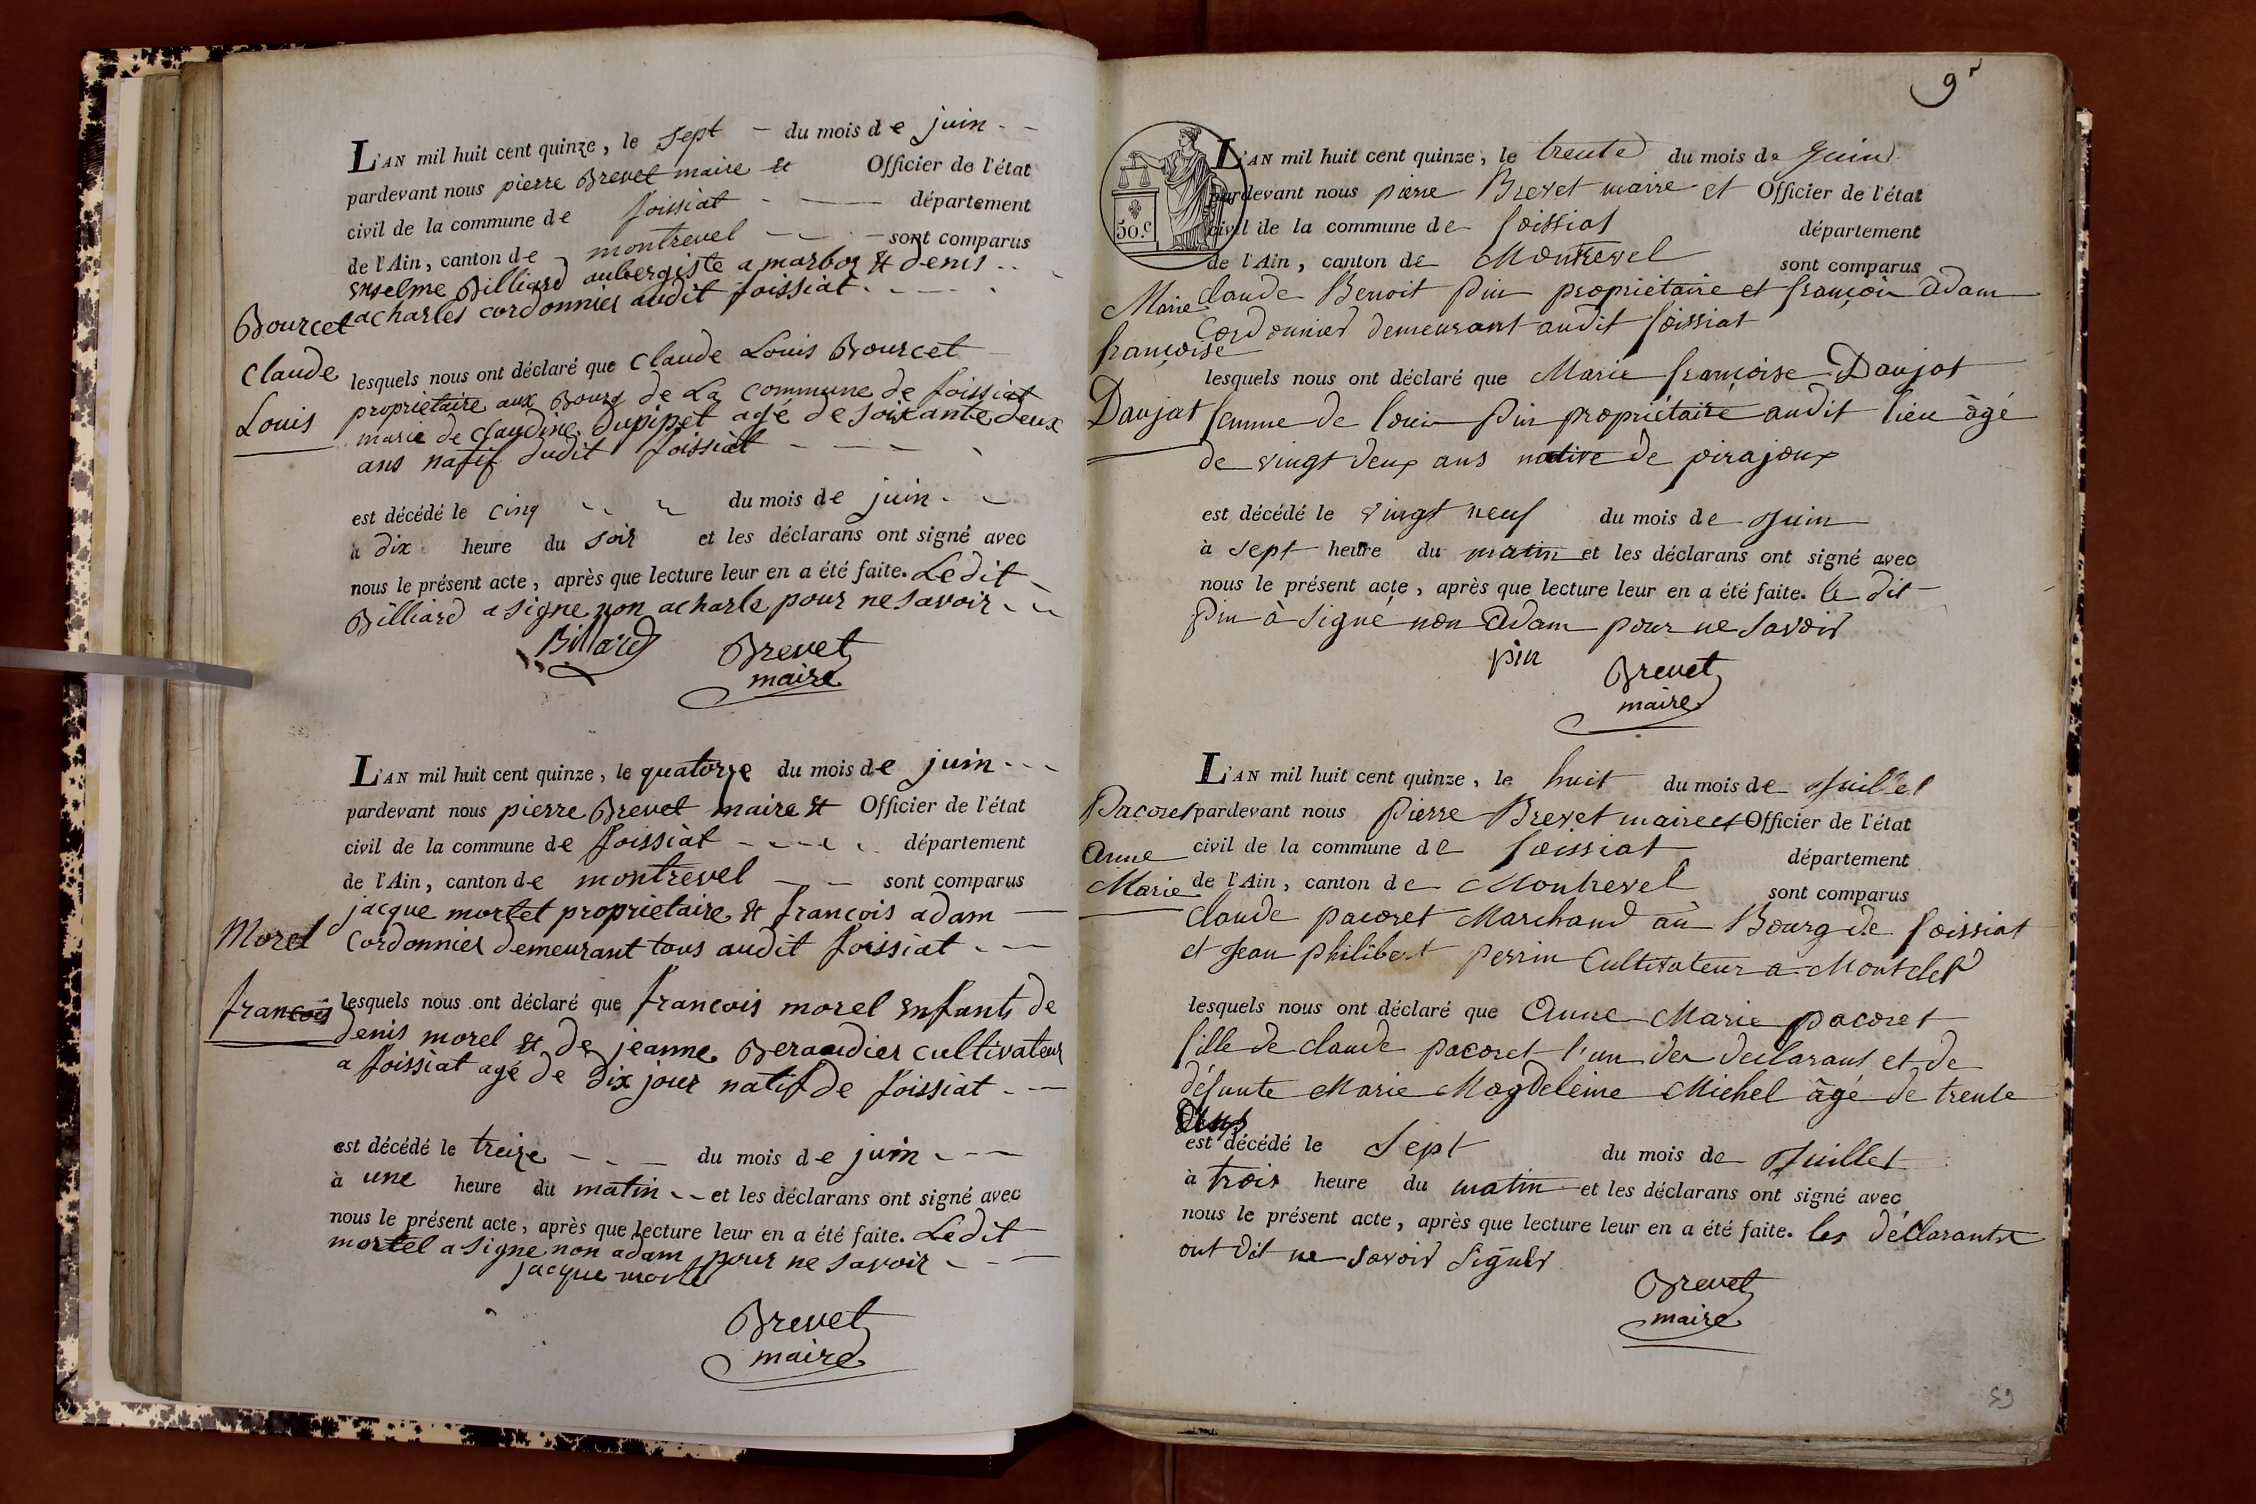 L'AN mil huit cent quinze, le sept du mois de juin
pardevant nous pierre Brevet maire et Officier de l'état
civil de la commune de foissiat département
de l'Ain, canton de montrevel sont comparus
enselme Billiard aubergiste a marboz et denis
acharles cordonnier audit foissiat
Bourcet
Claude
Louis
lesquels nous ont déclaré que Claude Louis Bourcet
proprietaire aux Bourg de La Commune de foissiat
marié de Claudine dupipet agé de soixante deux
ans natif dudit foissiat
est décédé le cinq du mois de juin
à dix heure du soir et les déclarans ont signé avec
nous le présent acte, après que lecture leur en a été faite. Ledit
Billiard a signe non acharle pour ne savoir
Billiard
Brevet
maire
L'AN mil huit cent quinze, le quatorze du mois de juin
pardevant nous pierre Brevet maire et Officier de l'état
civil de la commune de foissiat département
de l'Ain, canton de montrevel sont comparus
jacque mortel proprietaire et francois adam
Cordonnier demeurant tous audit foissiat
Morel
francois
lesquels nous ont déclaré que francois morel enfants de
denis morel et de jeanne Beraudier cultivateur
a foissiat agé de dix jour natif de foissiat
est décédé le treize du mois de juin
à une heure du matin et les déclarans ont signé avec
nous le présent acte, après que lecture leur en a été faite. Ledit
mortel a signe non adam pour ne savoir
jacque mortel
Brevet
maire
9
50.c
L'AN mil huit cent quinze, le trente du mois de Juin
pardevant nous pierre Brevet maire et Officier de l'état
civil de la commune de foissiat département
de l'Ain, canton de Montrevel sont comparus
Claude Benoit Pin propriétaire et françois Adam
Cordonnier demeurant audit foissiat
Marie
françoise
Daujat
lesquels nous ont déclaré que Marie françoise Daujat
femme de louis Pin propriétaire audit lieu âgé
de vingt deux ans native de pirajoux
est décédé le vingt neuf du mois de Juin
à sept heure du matin et les déclarans ont signé avec
nous le présent acte, après que lecture leur en a été faite. le dit
Pin à signé non Adam pour ne savoir
pin
Brevet
maire
L'AN mil huit cent quinze, le huit du mois de Juillet
pardevant nous Pierre Brevet maire et Officier de l'état
civil de la commune de foissiat département
de l'Ain, canton de Montrevel sont comparus
Pacoret
Anne
Marie
Claude pacoret Marchand au Bourg de foissiat
et Jean philibert perrin Cultivateur a Montclef
lesquels nous ont déclaré que Anne Marie pacoret
fille de claude pacoret l'un des declarans et de
défunte Marie Magdeleine Michel âgé de trente
est décédé le Sept du mois de Juillet
à trois heure du matin et les déclarans ont signé avec
nous le présent acte, après que lecture leur en a été faite. les déclarants
ont dit ne savoir Signer
Brevet
maire
59